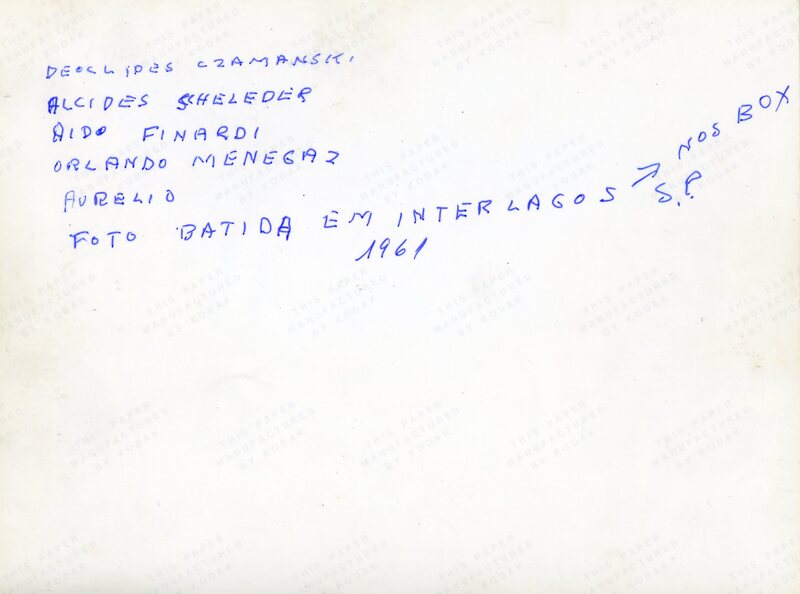 DEOCLIDES CZAMANSKI
ALCIDES SCHELEDER
AIDO FINARDI
ORLANDO MENEGAZ
AURELIO
FOTO BATIDA EM INTERLAGOS → NOS BOX
S.P.
1961
THIS PAPER
MANUFACTURED
BY KODAK